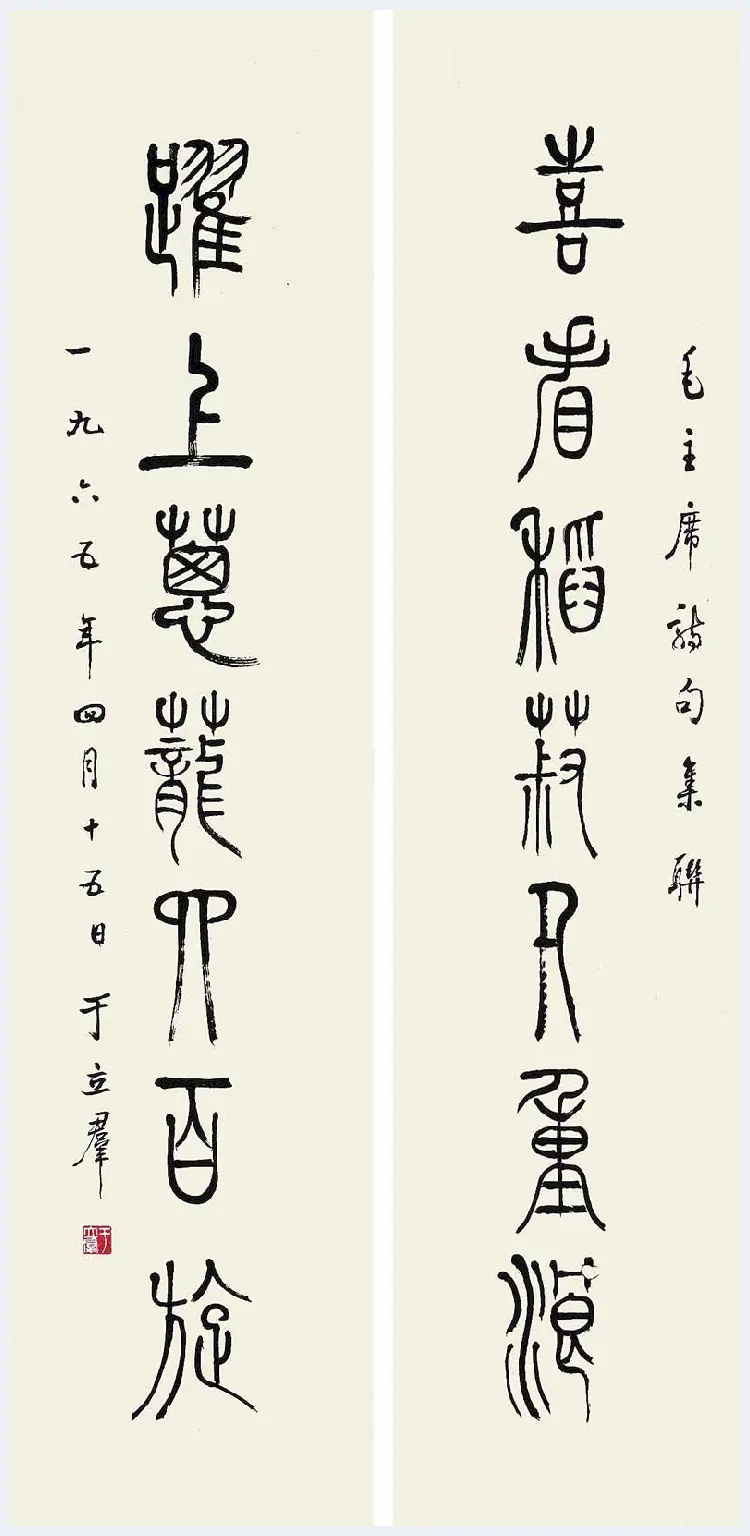 毛主席詩句集聯
喜看稻菽千重浪
躍上蔥蘢四百旋
一九六五年四月十五日 于立羣
于立羣